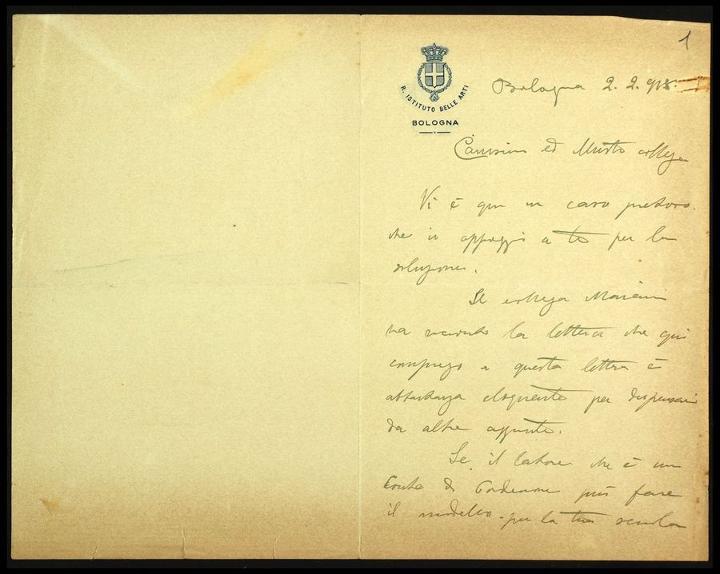 1
R. ISTITUTO BELLE ARTI
BOLOGNA
Bologna 2. 2. 918.
Carissimo ed Illustre collega
Vi è qui un caro
che io appoggio a te per la
soluzione.
Il collega Mariani
ha ricevuto la lettera che qui
a questa lettera è
abbastanza eloquente per dispensarmi
da altre aggiunte.
Se il latore che è un
Conte di Pordenone può fare
il modello per la tua scuola